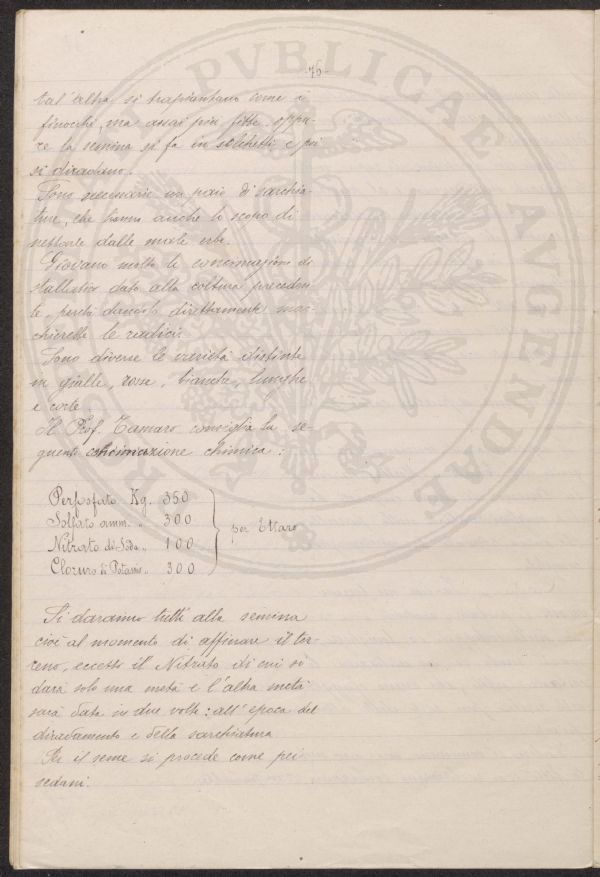 -76-
tal'altra si trapiantano come i
finocchi, ma assai più fitte, oppu-
re la semina si fa in solchetti e poi
si diradano.
Sono necessarie un paio di sarchia-
ture, che hanno anche lo scopo di
nettarle dalle male erbe.
Giovano molto le concimazioni di
stallatico dato alla coltura preceden-
te, perchè dandolo direttamente mac-
chierebbe le radici.
Sono diverse le varietà distinte
in gialle, rosse, bianche, lunghe
e corte
Il Prof. Tamaro consiglia la se-
guente concimazione chimica:
Perfosfato Kg. 350
Solfato amm. " 300
Nitrato di Soda " 100
Cloruro di Potassio " 300
per Ettaro
Si daranno tutti alla semina
cioè al momento di affinare il ter-
reno, eccetto il Nitrato di cui si
darà solo una metà e l'altra metà
sarà data in due volte: all'epoca del
diradamento e della sarchiatura
Per il seme si procede come pei
sedani.
PVBLICAE
AVGENDAE